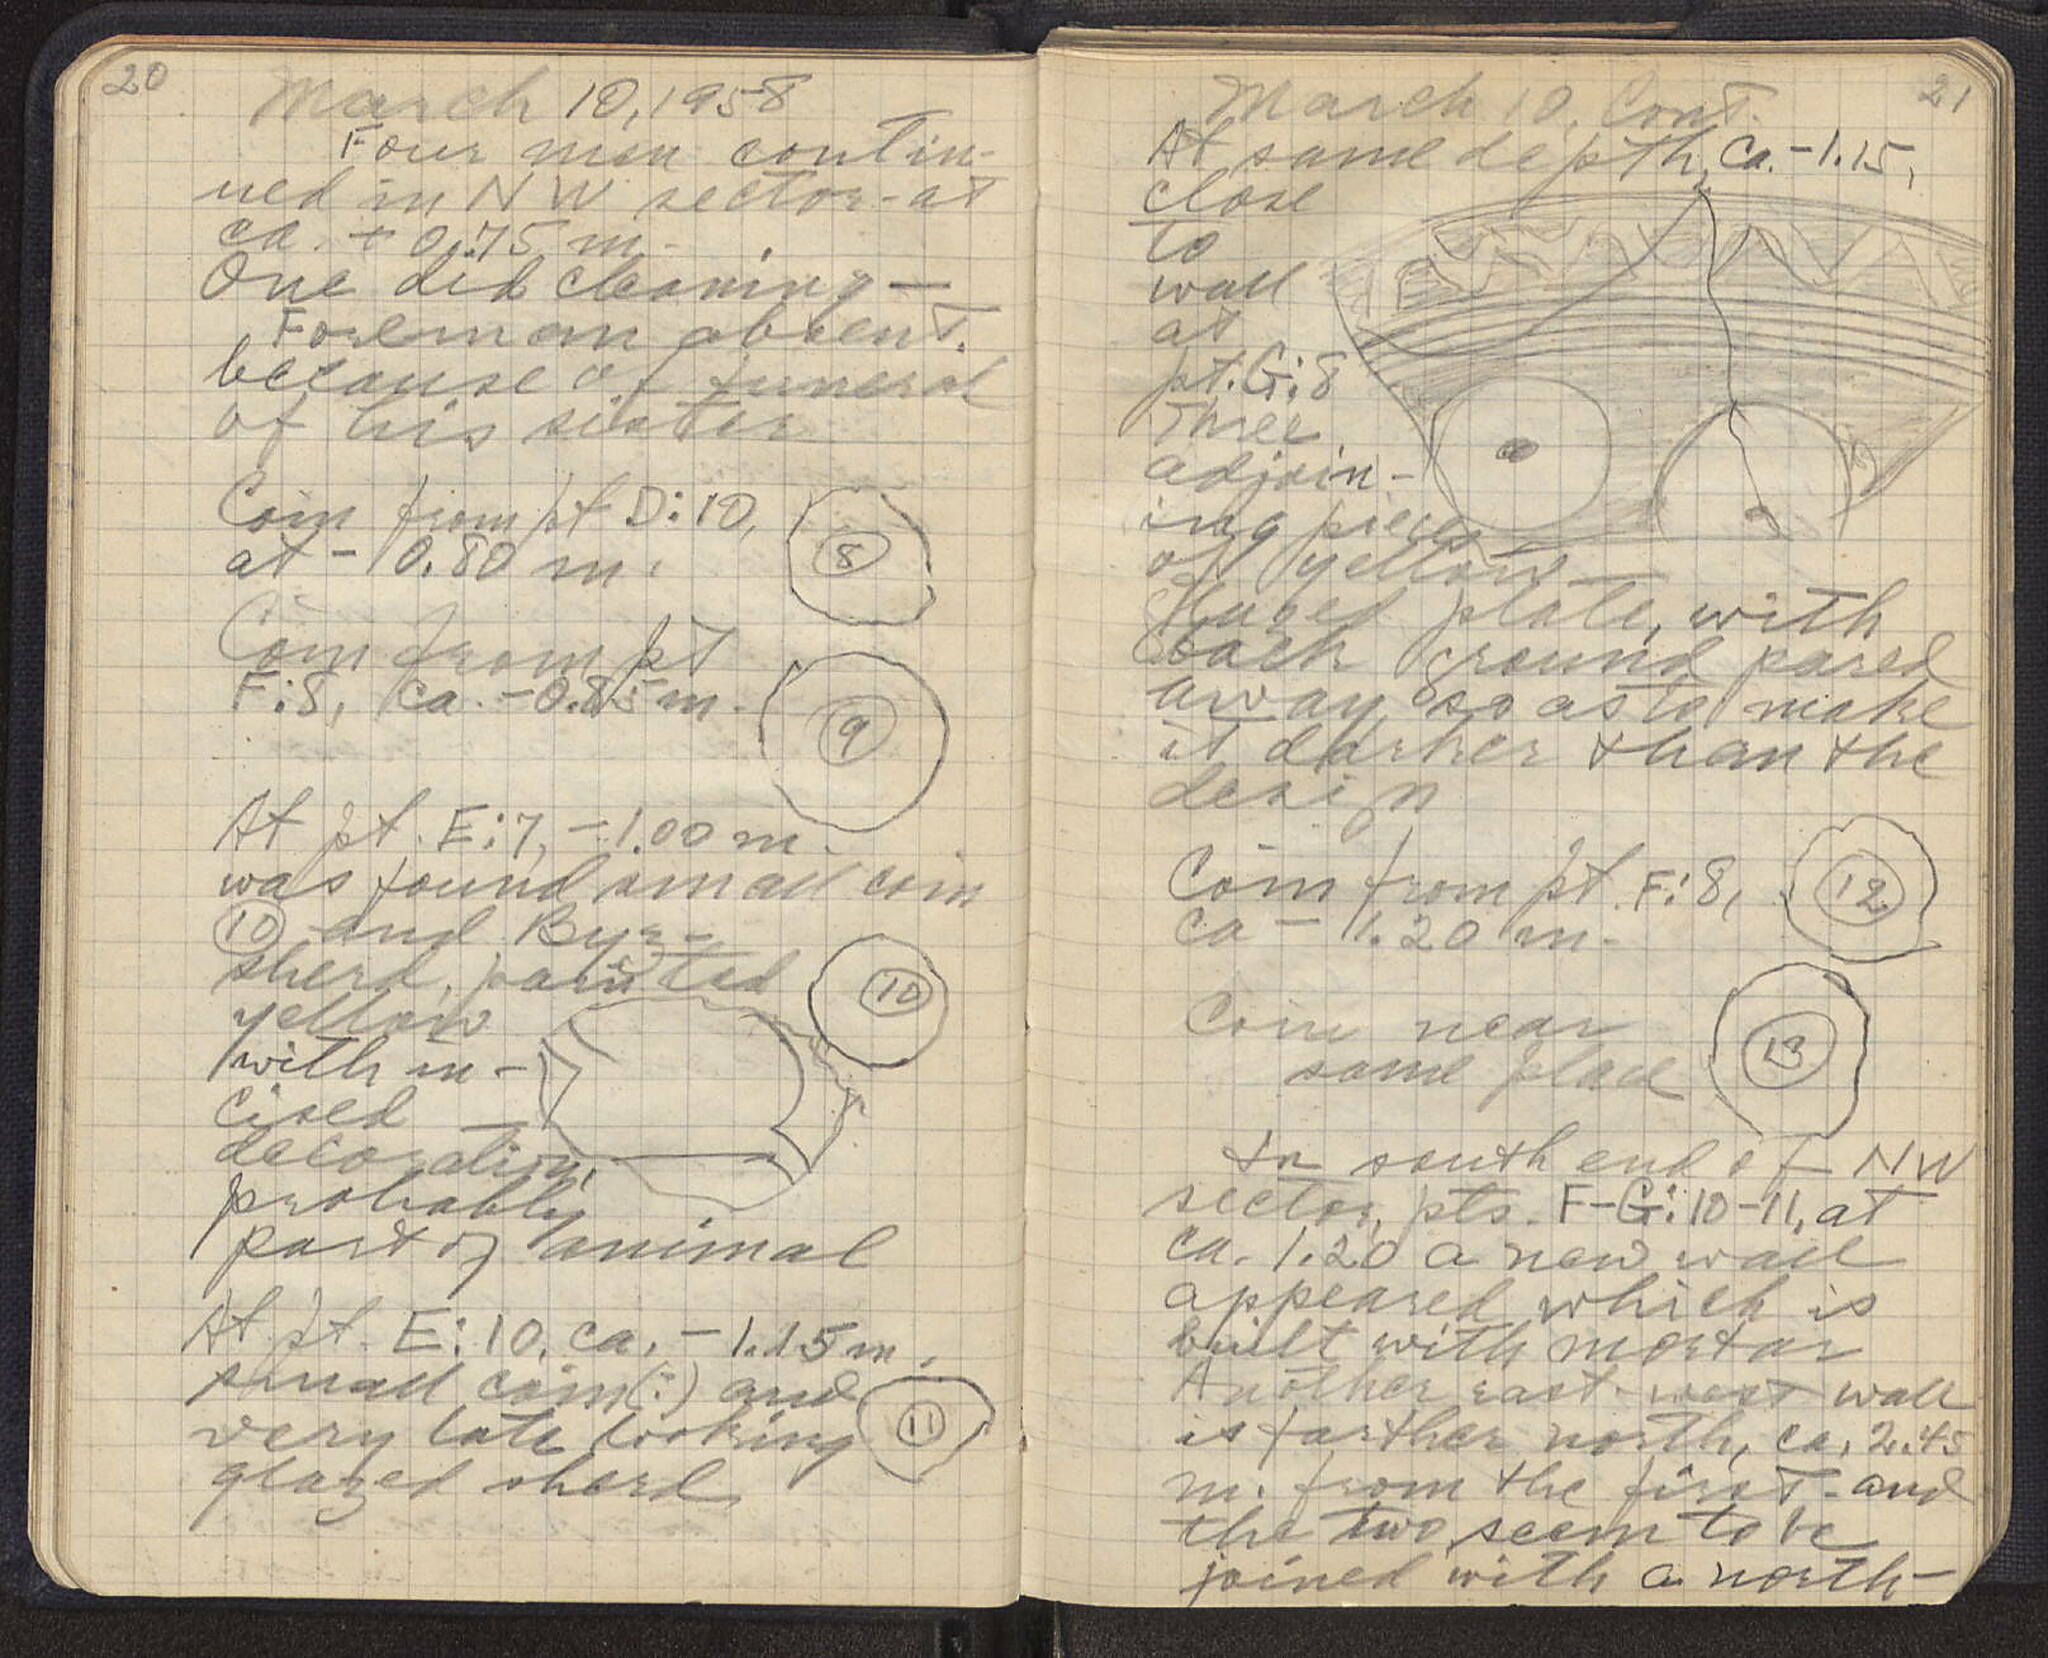 20
March 10, 1958
Four men contin-
ued in NW sector - at
ca. + 0.75 m.
One did cleaning —
Foreman absent
because of funeral
of his sister
Coin from pt D:10,
at - 0.80 m.
8
Coin from pt
F:8, ca. - 0.85 m.
9
At pt. E:7, - 1.00 m.
was found small coin
10 and Byz-
sherd, painted
10
yellow
with in-
cised
decoration,
probably
part of animal
At pt. E:10, ca. - 1.15 m.
small coin(?) and
very late looking
11
glazed sherd
21
March 10, Cont.
At same depth, ca. - 1.15,
close
to
wall
at
pt. G:8
Three
adjoin-
ing pieces
of yellow
glazed plate, with
back ground pared
away so as to make
it darker than the
design
Coin from pt. F:8,
ca - 1.20 m.
12
Coin near
same place
13
In south end of NW
sector, pts. F-G:10-11, at
ca. 1.20 a new wall
appeared which is
built with mortar
Another east-west wall
is farther north, ca. 2.45
m. from the first - and
the two seem to be
joined with a north-